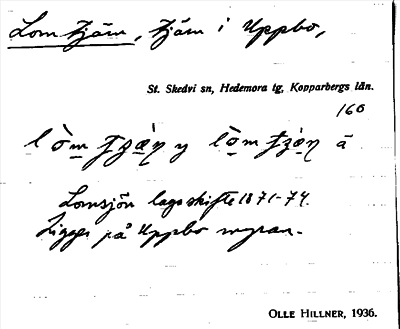 Lomtjärn, tjärn i Uppbo,
St. Skedvi sn, Hedemora tg, Kopparbergs län.
160
Lomsjön laga skifte 1871-74.
Ligger på Uppbo myran.
OLLE HILLNER, 1936.